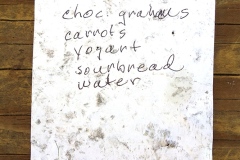 choc. grahams
carrots
yogart
sourbread
water